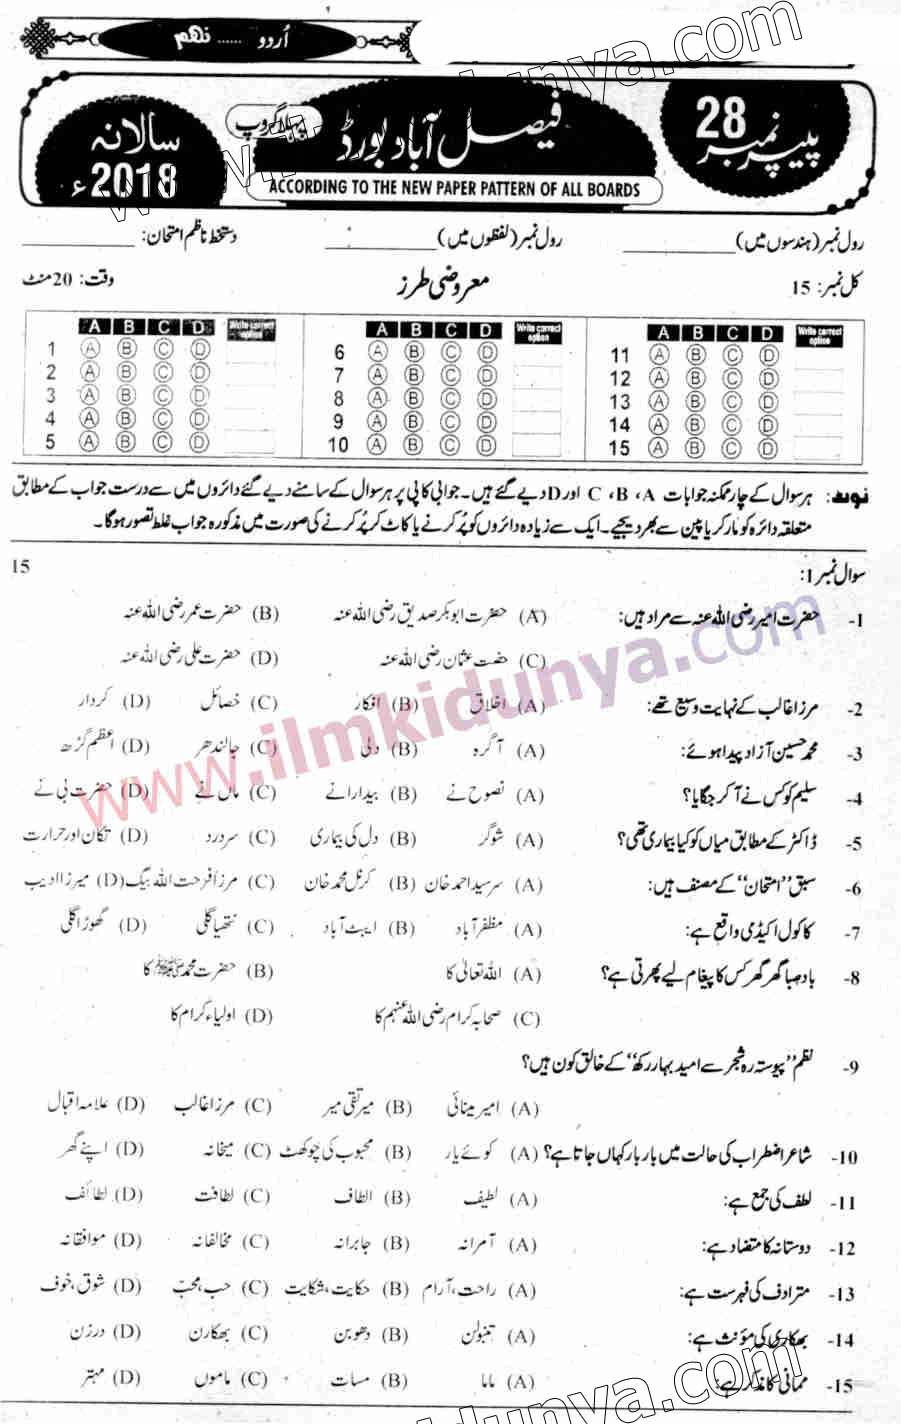 اُردو ...... نہم
پیپر نمبر 28
فیصل آباد بورڈ
پہلا گروپ
سالانہ 2018ء
ACCORDING TO THE NEW PAPER PATTERN OF ALL BOARDS
رول نمبر (ہندسوں میں) ____________ رول نمبر (لفظوں میں) ____________ دستخط ناظم امتحان: ____________
کل نمبر: 15 معروضی طرز وقت: 20 منٹ
A B C D Write correct option A B C D Write correct option A B C D Write correct option
1 A B C D 6 A B C D 11 A B C D
2 A B C D 7 A B C D 12 A B C D
3 A B C D 8 A B C D 13 A B C D
4 A B C D 9 A B C D 14 A B C D
5 A B C D 10 A B C D 15 A B C D
نوٹ: ہر سوال کے چار ممکنہ جوابات A، B، C اور D دیے گئے ہیں۔ جوابی کاپی پر ہر سوال کے سامنے دیے گئے دائروں میں سے درست جواب کے مطابق
متعلقہ دائرہ کو مارکر یا پین سے بھر دیجیے۔ ایک سے زیادہ دائروں کو پُر کرنے یا کاٹ کر پُر کرنے کی صورت میں مذکورہ جواب غلط تصور ہوگا۔
سوال نمبر 1: 15
1- حضرت امیر رضی اللہ عنہ سے مراد ہیں: (A) حضرت ابوبکر صدیق رضی اللہ عنہ (B) حضرت عمر رضی اللہ عنہ
(C) حضت عثمان رضی اللہ عنہ (D) حضرت علی رضی اللہ عنہ
2- مرزا غالب کے نہایت وسیع تھے: (A) اخلاق (B) افکار (C) خصائل (D) کردار
3- محمد حسین آزاد پیدا ہوئے: (A) آگرہ (B) دلی (C) جالندھر (D) اعظم گڑھ
4- سلیم کو کس نے آکر جگایا؟ (A) نصوح نے (B) بیدارا نے (C) ماں نے (D) حضرت بی نے
5- ڈاکٹر کے مطابق میاں کو کیا بیماری تھی؟ (A) شوگر (B) دل کی بیماری (C) سر درد (D) تکان اور حرارت
6- سبق ”امتحان“ کے مصنف ہیں: (A) سر سید احمد خان (B) کرنل محمد خان (C) مرزا فرحت اللہ بیگ (D) میرزا ادیب
7- کاکول اکیڈمی واقع ہے: (A) مظفر آباد (B) ایبٹ آباد (C) نتھیا گلی (D) گھوڑا گلی
8- بادِ صبا گھر گھر کس کا پیغام لیے پھرتی ہے؟ (A) اللہ تعالیٰ کا (B) حضرت محمد ﷺ کا
(C) صحابہ کرام رضی اللہ عنہم کا (D) اولیاء کرام کا
9- نظم ”پیوستہ رہ شجر سے امید بہار رکھ“ کے خالق کون ہیں؟
(A) امیر مینائی (B) میر تقی میر (C) مرزا غالب (D) علامہ اقبال
10- شاعر اضطراب کی حالت میں بار بار کہاں جاتا ہے؟ (A) کوئے یار (B) محبوب کی چوکھٹ (C) میخانہ (D) اپنے گھر
11- لطف کی جمع ہے: (A) لطیف (B) الطاف (C) لطافت (D) لطائف
12- دوستانہ کا متضاد ہے: (A) آمرانہ (B) جابرانہ (C) مخالفانہ (D) موافقانہ
13- مترادف کی فہرست ہے: (A) راحت، آرام (B) حکایت، شکایت (C) حب، محبّ (D) شوق، خوف
14- بھکاری کی مؤنث ہے: (A) تنبولن (B) دھوبن (C) بھکارن (D) درزن
15- ممانی کا مذکر ہے: (A) ماما (B) مسات (C) ماموں (D) مہتر
www.ilmkidunya.com